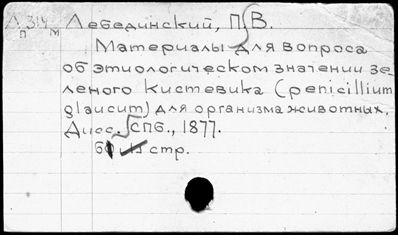 Л.314 Лебединский, П.В.
п м
Материалы для вопроса
об этиологическом значении зе-
леного Кистевика (penicillium
glaucum) для организма животных.
Дисс. СПб., 1877.
стр.